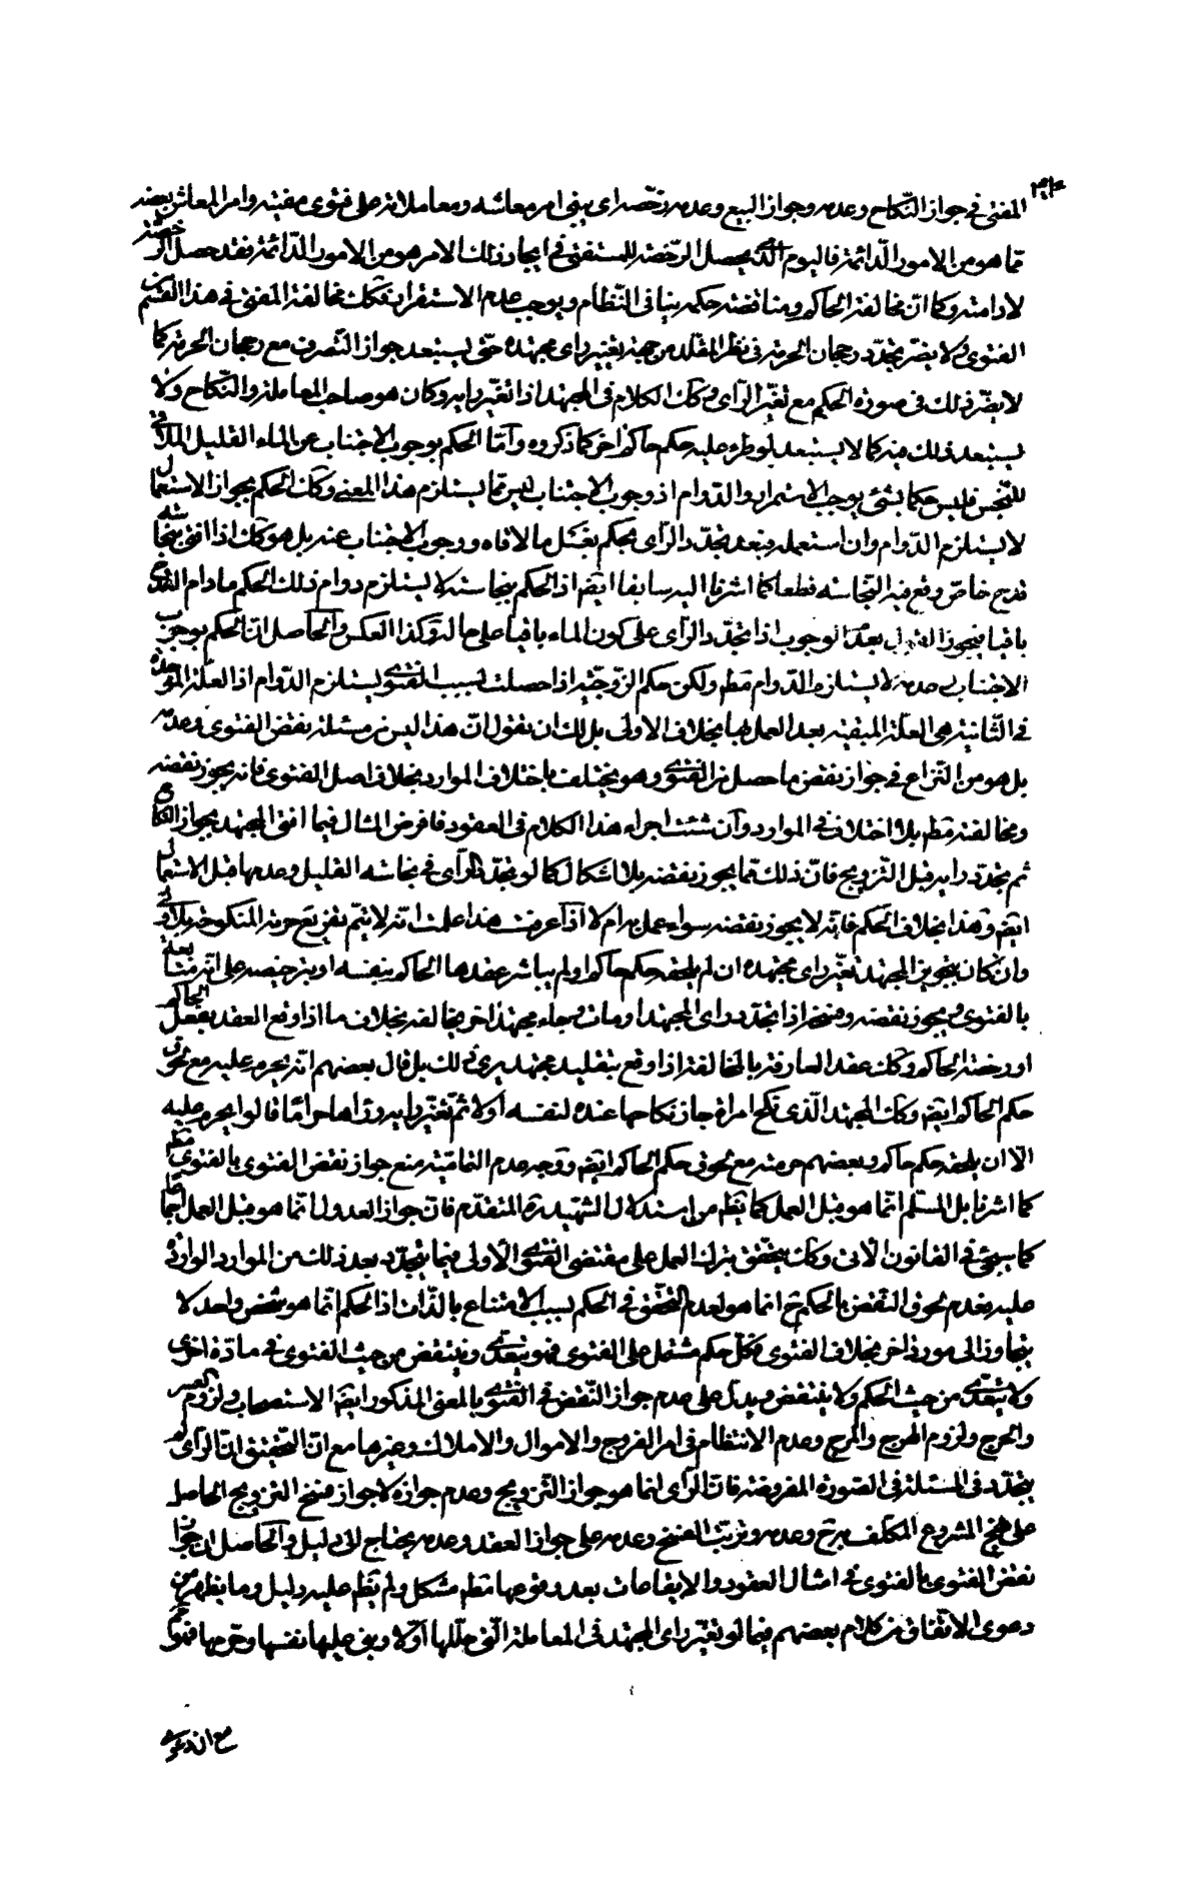 المفتى فى جواز النّكاح وعدمه وجواز البيع وعدمه رخّصه اى يبنى امر معاشه ومعاملاته على فتوى مفتيه وامر المعاش بعضه
ممّا هو من الامور الدّائمة فاليوم الّذى يحصل الرّخصة للمستفتى فى ايجاد ذلك الامر هو من الامور الدّائمة فقد حصل الرّخصة
لادامته وكما انّ مخالفة الحاكم ومناقضة حكمه ينافى النّظام ويوجب عدم الاستقرار فكك مخالفة المفتى فى هذا القسم من
الفتوى ولا يضرّ تجدّد رجحان الحرمة فى نظر المقلد من جهة تغيير راى مجتهده حتّى يستبعد جواز التّصرف مع رجحان الحرمة كما
لا يضرّ ذلك فى صورة الحكم مع تغيّر الرّاى وكك الكلام فى المجتهد اذا تغيّر رايه وكان هو صاحب المعاملة والنّكاح ولا
يستبعد ذلك منه كما لا يستبعد لو طرء عليه حكم حاكم اخر كما ذكروه وامّا الحكم بوجوب الاجتناب عن الماء القليل الملاقى
للنّجس فليس حكما بشئ يوجب الاستمرار والدّوام اذ وجوب الاجتناب ليس ممّا يستلزم هذا المعنى وكك الحكم بجواز الاستعمال
لا يستلزم الدّوام وان استعمله فبعد تجدّد الرّاى يحكم بغسل ما لاقاه ووجوب الاجتناب عنه بل هو كك اذا افتى بنجاسة
قدح خاصّ وقع فيه النّجاسة قطعا كما اشرنا اليه سابقا ايضا اذ الحكم بنجاسته لا يستلزم دوام ذلك الحكم ما دام القدح
باقيا فيجوز بعد الوجوب اذا تجدّد الرّاى على كون الماء باقيا على حاله وكذا العكس والحاصل انّ الحكم بوجوب
الاجتناب وعدمه لا يستلزم الدّوام مطم ولكن حكم الزّوجيّة اذا حصلت بسبب الفتوى يستلزم الدّوام اذ العلّة الموجدة
فى الثّانية هى العلّة المبقية بعد العمل بها بخلاف الاولى بل لك ان تقول انّ هذا ليس من مسئلة نقض الفتوى وعدمه
بل هو من النّزاع فى جواز نقض ما حصل من الفتوى وهو يختلف باختلاف الموارد بخلاف اصل الفتوى فانه يجوز نقضه
ومخالفته مطم بلا اختلاف فى الموارد وان شئت اجراء هذا الكلام فى العقود فافرض المثال فيما افتى المجتهد بجواز النّكاح
ثم يتجدّد رايه قبل التّزويج فانّ ذلك ممّا يجوز نقضه بلا اشكال كما لو تجدّد الرّاى فى نجاسة القليل وعدمها قبل الاستعمال
ايضم وهذا بخلاف الحكم فانّه لا يجوز نقضه سواء عمل به ام لا اذا عرفت هذا علمت انّه لا يتمّ تفريع حرمة المنكوحة بلا ولى
وان كان بتجويز المجتهد بتغيّر راى مجتهده ان لم يلحقه حكم حاكم او لم يباشر عقدها الحاكم بنفسه او بترخيصه على انّه متابعة
بالفتوى ويجوز نقضه وفسخه اذا تجدّد راى المجتهد او مات وجاء مجتهد اخر يخالفه بخلاف ما اذا وقع العقد بفعل الحاكم
او رخصة الحاكم وكك عقد العارفة بالمخالفة اذا وقع بتقليد مجتهد يرى ذلك بل قال بعضهم انّه يحرم عليه مع لحوق
حكم الحاكم ايضم وكك المجتهد الّذى نكح امراة جاز نكاحها عنده لنفسه اولا ثم تغيّر رايه وراها حراما قالوا يحرم عليه
الّا ان يلحقه حكم حاكم وبعضهم حرمته مع لحوق حكم الحاكم ايضم ووجه عدم التماميّة منع جواز نقض الفتوى بالفتوى مطم
كما اشرنا بل المسلم انّما هو قبل العمل كما يظهر من استدلال الشّهيد ره المتقدّم فانّ جواز العدول انّما هو قبل العمل اجماعا
كما سيجئ فى القانون الآتى وكك يتحقّق بترك العمل على مقتضى الفتوى الاولى فيما يتجدّد بعد ذلك من الموارد الواردة
عليه فعدم لحوق النّقض بالحكم ح انما هو لعدم التحقّق فى الحكم بسبب الامتناع بالذّات اذ الحكم انّما هو شخص واحد لا
يتجاوز الى مورد اخر بخلاف الفتوى فكلّ حكم مشتمل على الفتوى فهو يتعدّى وينتقض من حيث الفتوى فى مادّة اخرى
ولا يتعدّى من حيث الحكم ولا ينتقض ويدلّ على عدم جواز النّقض فى الفتوى بالمعنى المذكور ايضا الاستصحاب ولزوم العسر
والحرج ولزوم الهرج والمرج وعدم الانتظام فى امر الفروج والاموال والاملاك وغيرها مع انّ التحقيق انّ الرّاى لم
يتجدّد فى المسئلة فى الصّورة المفروضة فانّ الرّاى انّما هو جواز التّزويج وعدم جوازه لا جواز فسخ التّزويج الحاصل
على نهج المشروع المكلّف به ح وعدمه وترتّب الفسخ وعدمه على جواز العقد وعدمه يحتاج الى دليل والحاصل انّ جواز
نقض الفتوى بالفتوى فى امثال العقود والايقاعات بعد وقوعها مطم مشكل ولم يظهر عليه دليل وما يظهر من
دعوى الاتّفاق من كلام بعضهم فيما لو تغيّر راى المجتهد فى المعاملة الّتى حلّلها اوّلا وبنى عليها نفسها وحرمها فهو
مع انّ دعوى